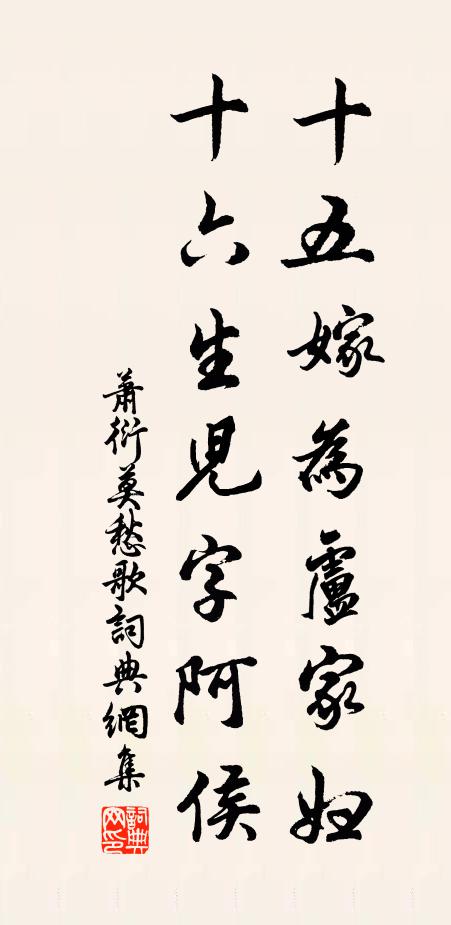 十五嫁為盧家婦
十六生児字阿侯
蕭衍莫愁歌詞典網集
詞典网印